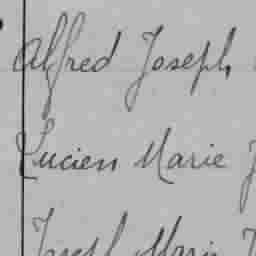 Alfred Joseph
Lucien Marie
Joseph Marie